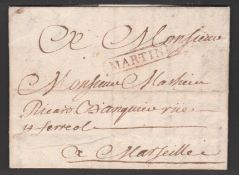 A Monsieur
MARTIN
Monsieur Mathieu
Ricard Banquier rüe
st ferreol
a Marseille